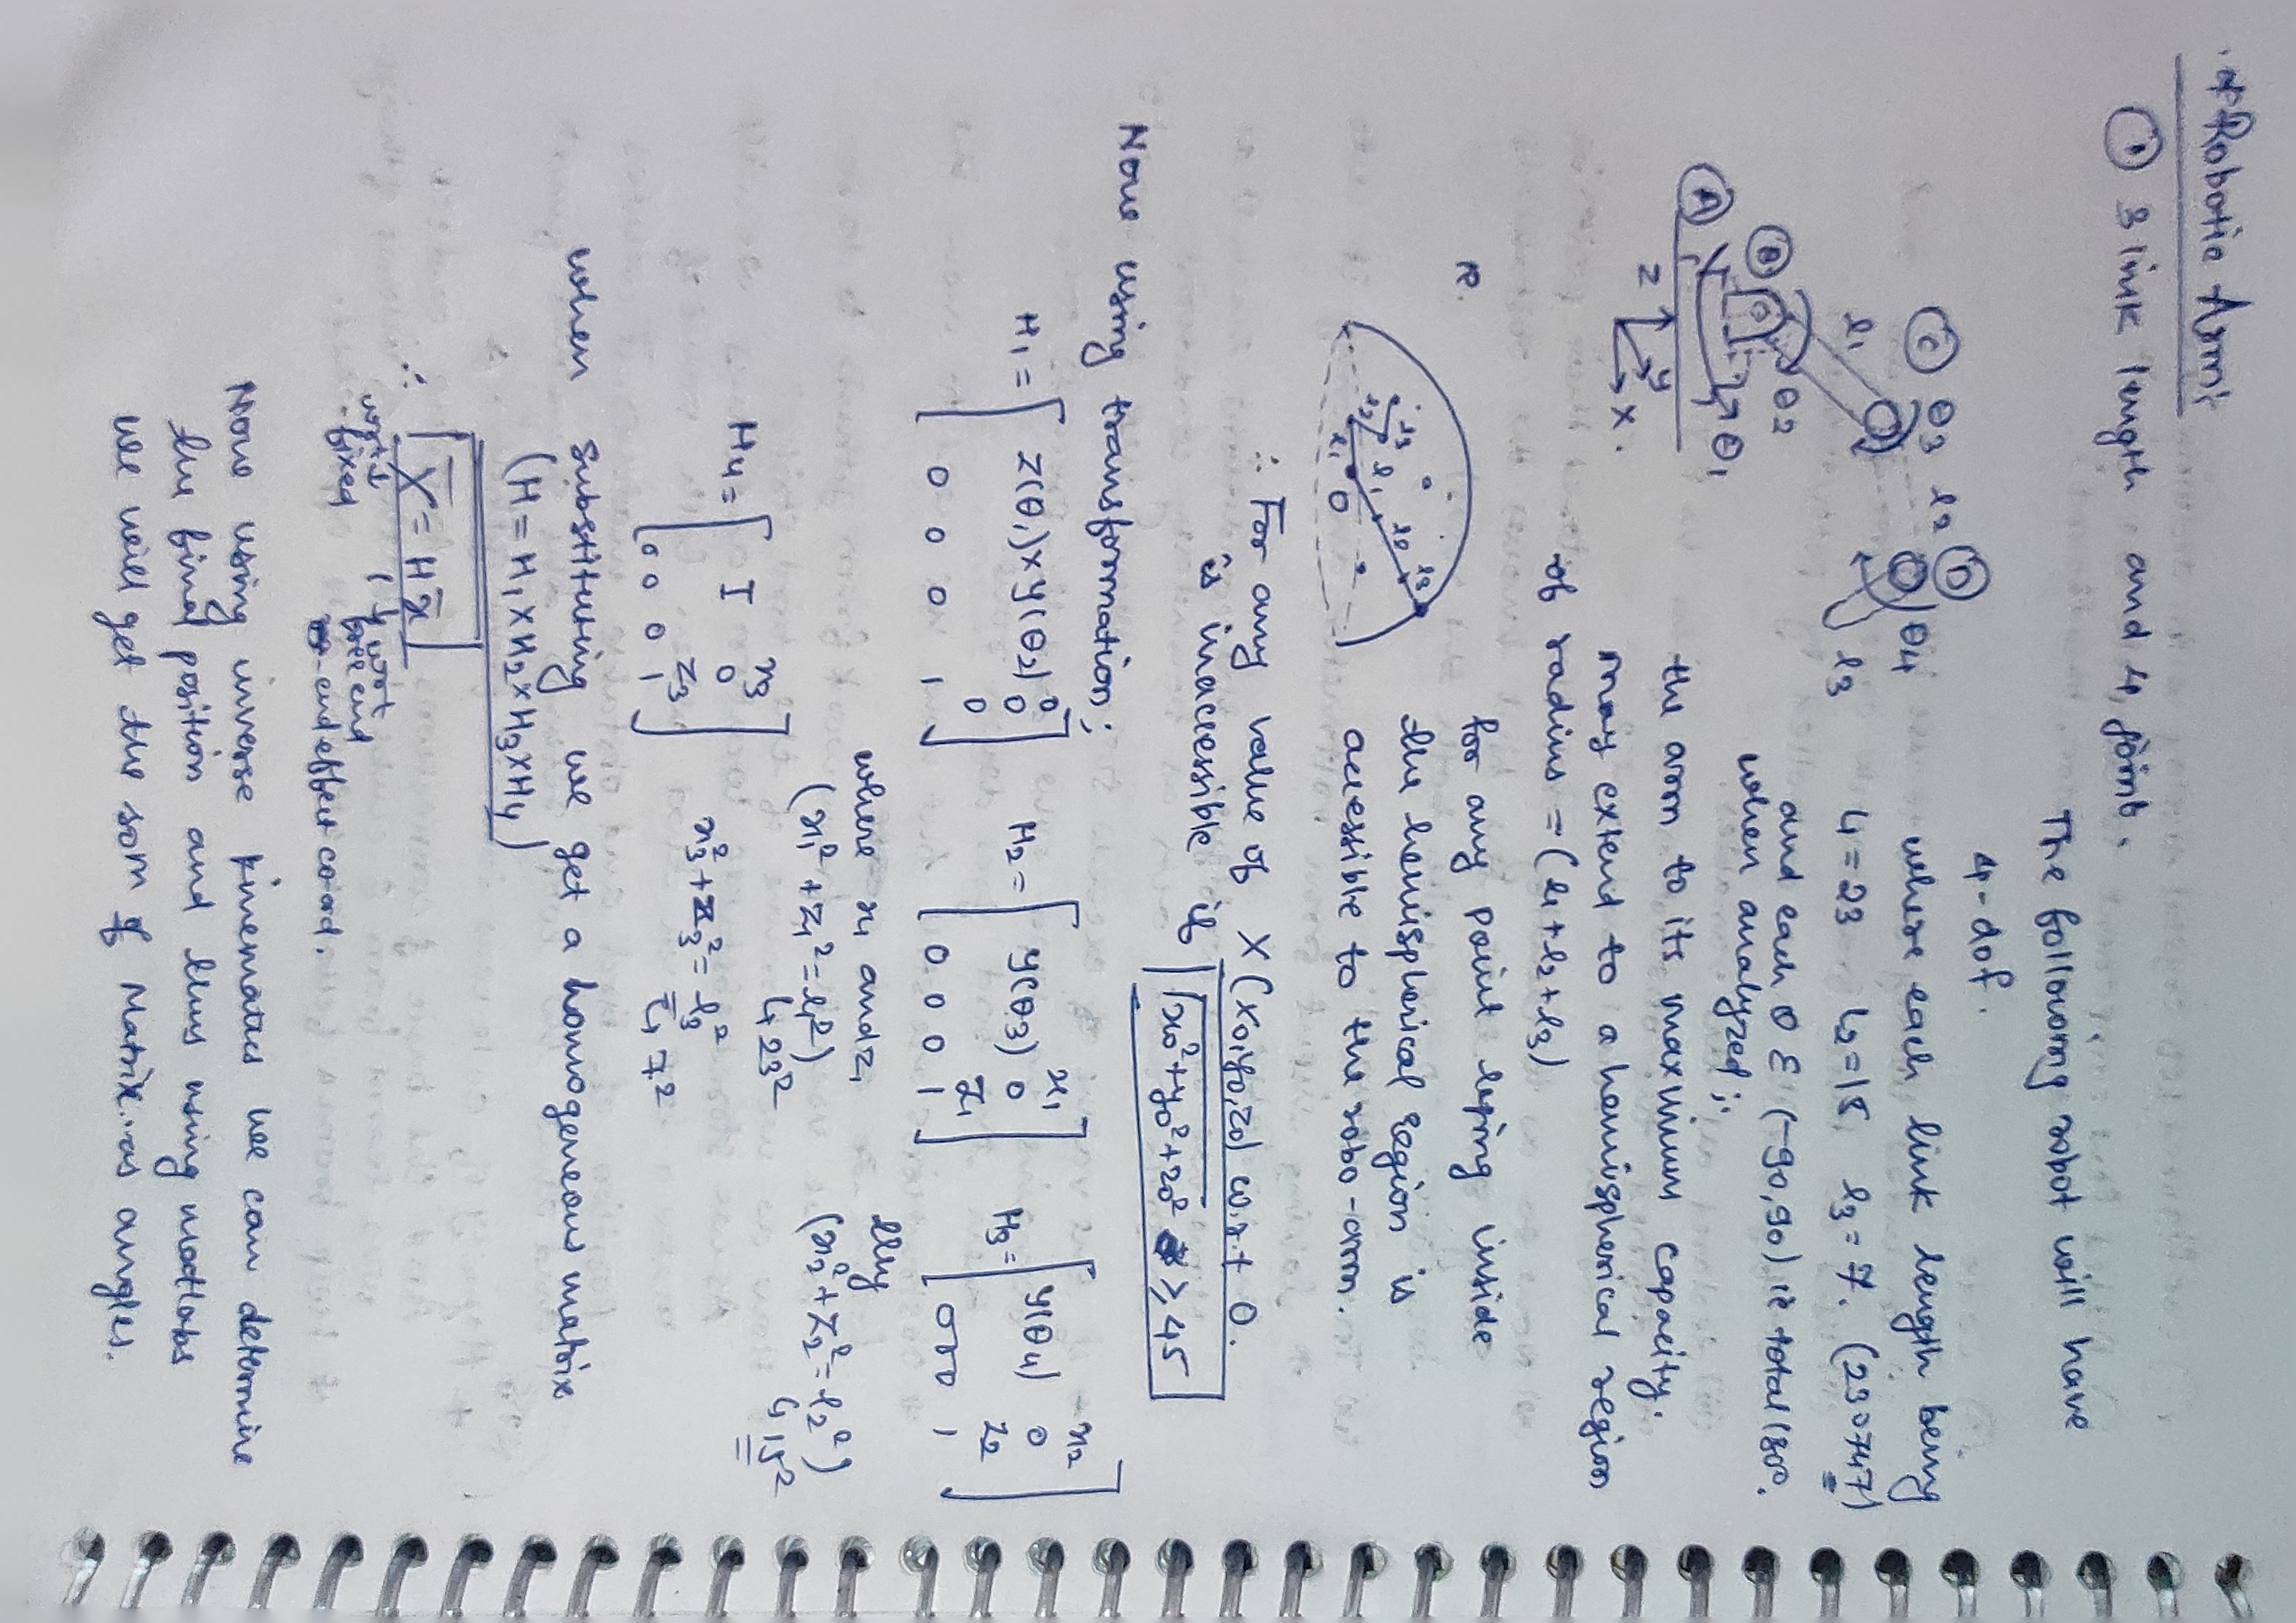 Robotic Arm:
① 3 link length and 4 joint.
The following robot will have
4-dof.
where each link length being
l1 = 23 l2 = 15 l3 = 7. (230747)
and each θ ε (-90, 90) ie total 180.
when analyzed;
the arm to its maximum capacity.
may extend to a hemispherical region
of radius = (l1 + l2 + l3)
A
B
C
D
l1
l2
l3
θ1
θ2
θ3
θ4
Z
Y
X.
R.
for any point lying inside
the hemispherical region is
accessible to the robo-arm.
O
l1
l2
l3
∴ For any value of X (x0, y0, z0) w.r.t O.
is inaccessible if √x0² + y0² + z0² ≥ 45
Now using transformation;
H1 = [ Z(θ1) x Y(θ2) 0
0
0
0 0 0 1 ]
H2 = [ Y(θ3) x1
0
z1
0 0 0 1 ]
H3 = [ Y(θ4) x2
0
z2
0 0 0 1 ]
where x1 and z1
(x1² + z1² = l1²)
↳ 23²
llly
(x2² + z2² = l2²)
↳ 15²
H4 = [ I x3
0
z3
0 0 0 1 ]
x3² + z3² = l3²
↳ 7²
when substituting we get a homogeneous matrix
(H = H1 x H2 x H3 x H4)
∴ X̄ = H x̄
w.r.t fixed
w.r.t
end effect coord.
Now using inverse kinematics we can determine
the final position and thus using matlabs
we will get the soln of Matrix. as angles.